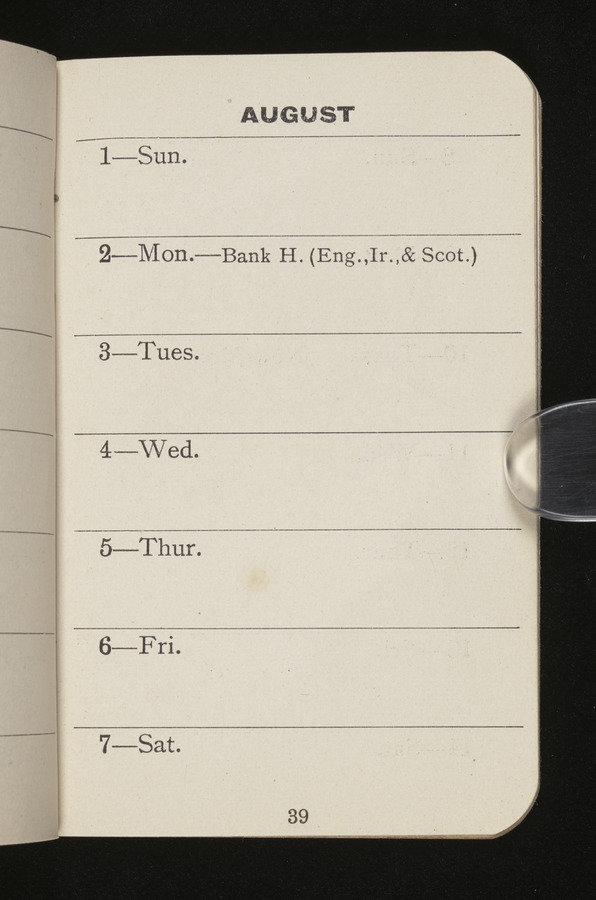 AUGUST
1—Sun.
2—Mon.—Bank H. (Eng.,Ir.,& Scot.)
3—Tues.
4—Wed.
5—Thur.
6—Fri.
7—Sat.
39